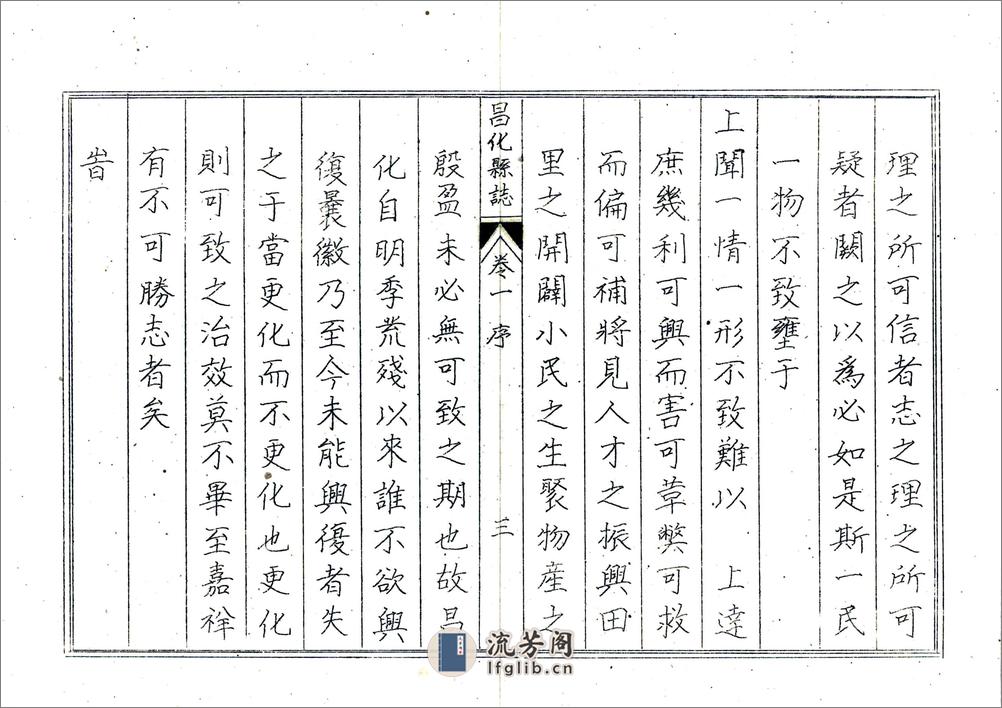 理之所可信者志之理之所可
疑者闕之以為必如是斯一民
一物不致壅于
上聞一情一形不致難以　上達
庶幾利可興而害可革獘可救
而偏可補將見人才之振興田
里之開闢小民之生聚物產之
昌化縣誌　卷一　序　三
殷盈未必無可致之期也故昌
化自明季荒殘以來誰不欲興
復曩徽乃至今未能興復者失
之于當更化而不更化也更化
則可致之治效莫不畢至嘉祥
有不可勝志者矣
旹
流芳阁
lfglib.cn